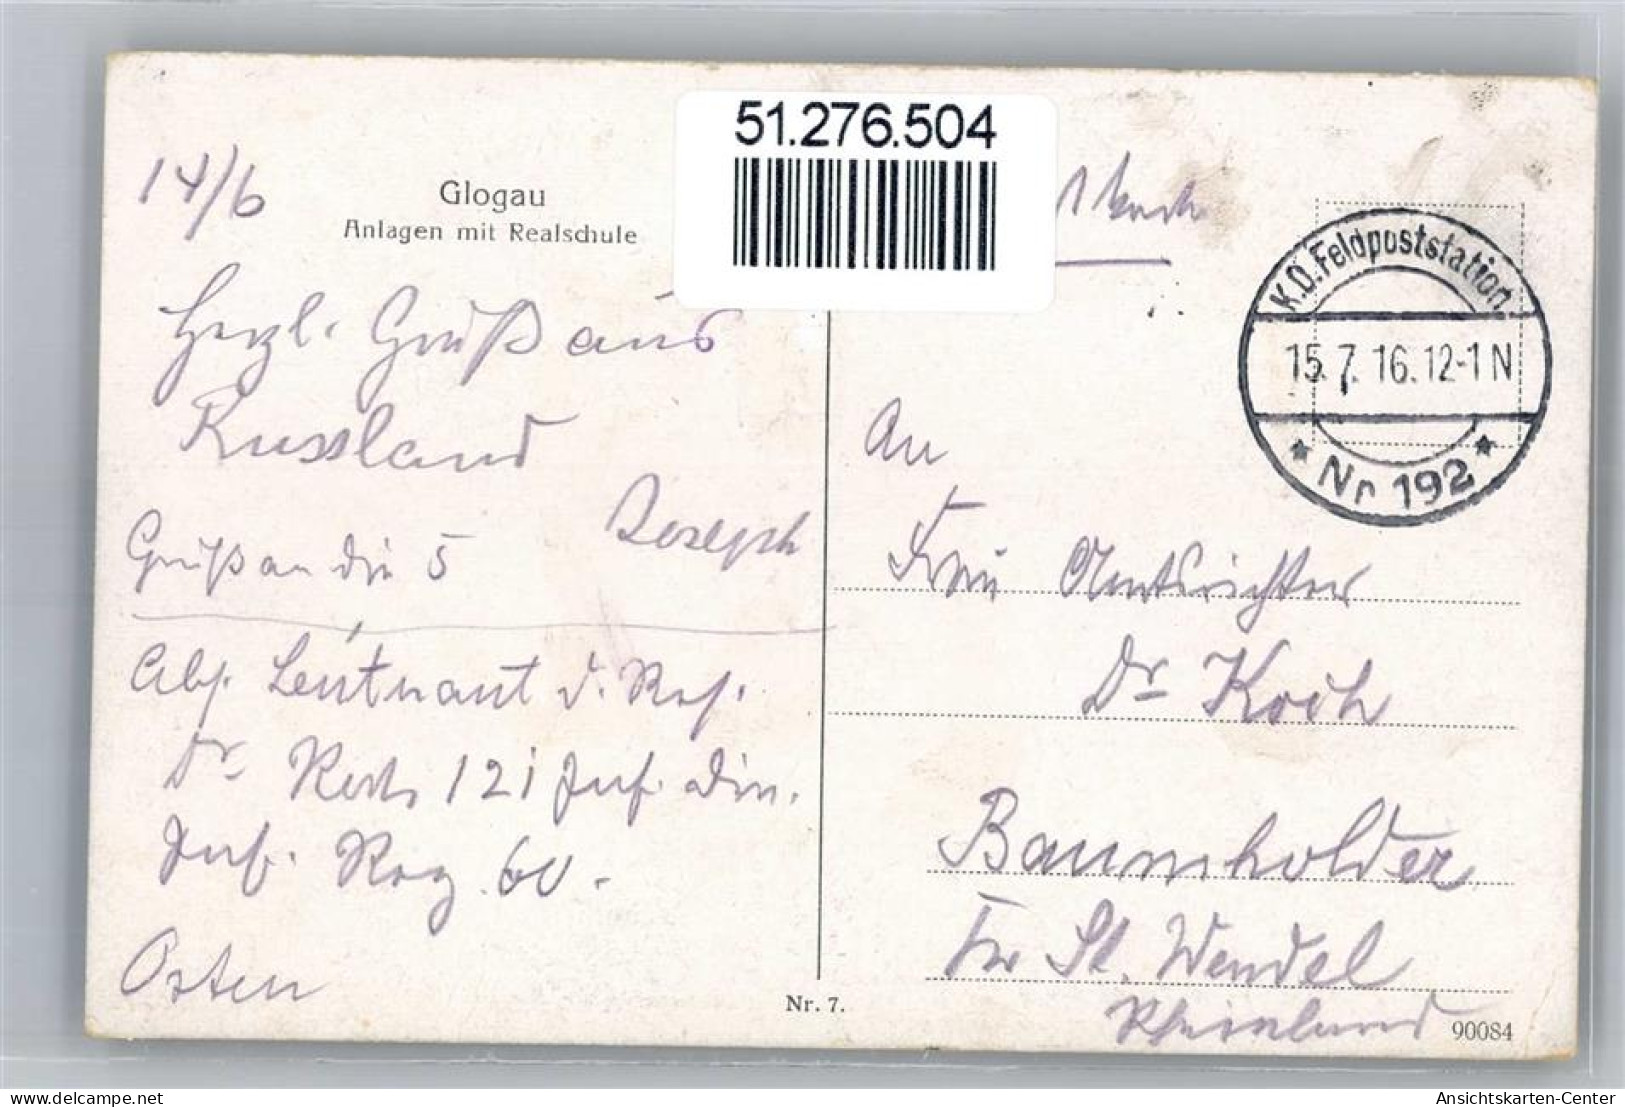 51.276.504
14/6
Glogau
Anlagen mit Realschule
Herzl. Gruß aus
Russland
Joseph
Gruß an die 5
Abs. Leutnant d. Res.
Dr Koch 121 Inf. Div.
Inf. Reg. 60.
Osten
Nr. 7.
K.D. Feldpoststation
15.7.16.12-1N
* Nr 192 *
An
Frau Amtsrichter
Dr Koch
Baumholder
Kr St. Wendel
Rheinland
90084
delcampe.net
Ansichtskarten-Center